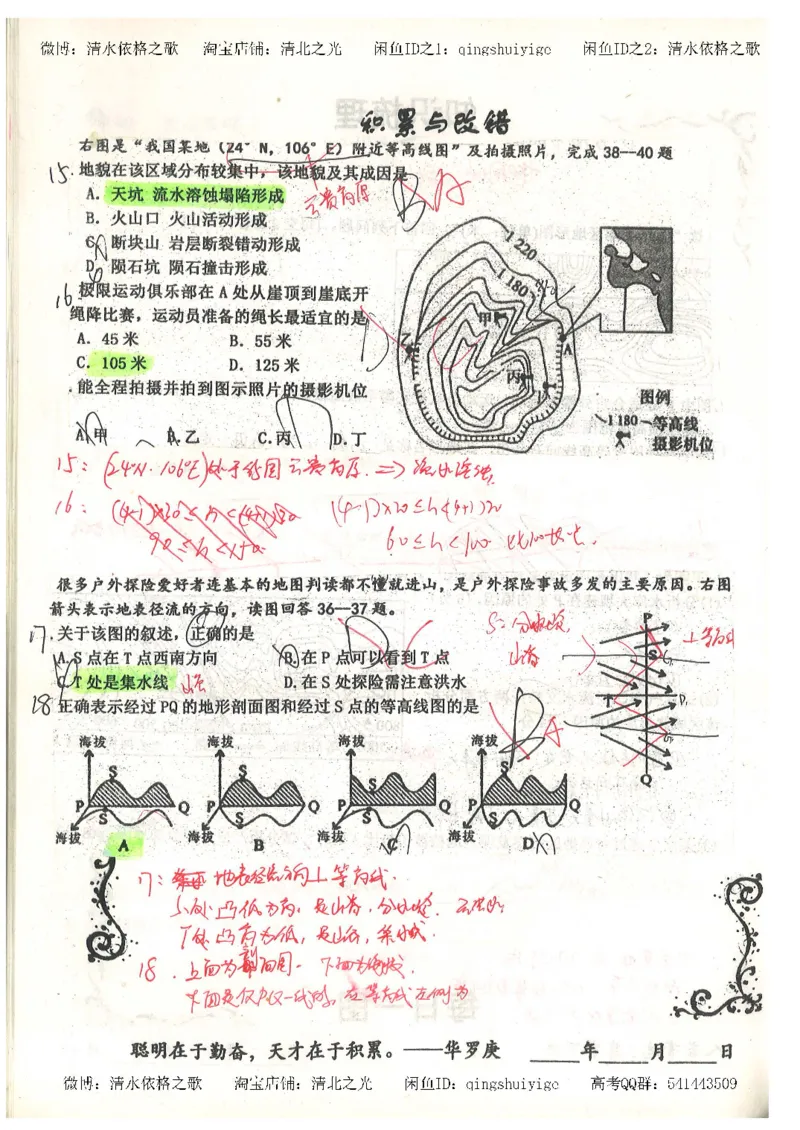 微博：清水依格之歌 淘宝店铺：清北之光 闲鱼ID之1：qingshuiyige 闲鱼ID之2：清水依格之歌
积累与改错
右图是“我国某地（24°N，106°E）附近等高线图”及拍摄照片，完成38—40题
15.地貌在该区域分布较集中，该地貌及其成因是
A．天坑 流水溶蚀塌陷形成
云贵高原
B．火山口 火山活动形成
C．断块山 岩层断裂错动形成
D．陨石坑 陨石撞击形成
16.极限运动俱乐部在A处从崖顶到崖底开
绳降比赛，运动员准备的绳长最适宜的是
A．45米 B．55米
C．105米 D．125米
.能全程拍摄并拍到图示照片的摄影机位
A.甲 B.乙 C.丙 D.丁
1220
1180
甲
乙
A
丙
丁
图例
1180 等高线
摄影机位
15：(24°N．106°E)处于我国云贵高原．=>流水溶蚀
16：(4-1)×20≤h<(4+1)20
60≤h<100
很多户外探险爱好者连基本的地图判读都不懂就进山，是户外探险事故多发的主要原因。右图
箭头表示地表径流的方向，读图回答36—37题。
17.关于该图的叙述，正确的是
A.S点在T点西南方向 B.在P点可以看到T点
C.T处是集水线 D.在S处探险需注意洪水
18正确表示经过PQ的地形剖面图和经过S点的等高线图的是
S：分水线
山脊
P
S
T
Q
海拔 海拔 海拔 海拔
S S S S
P Q P Q P Q P Q
S S S S
海拔 海拔 海拔 海拔
A B C D
17：地表径流方向⊥等高线．
S处凸低为高，是山脊，分水线．
T处凸高为低，是山谷，集水线．
18．上面为剖面图．
聪明在于勤奋，天才在于积累。——华罗庚 年 月 日
微博：清水依格之歌 淘宝店铺：清北之光 闲鱼ID：qingshuiyige 高考QQ群：541443509